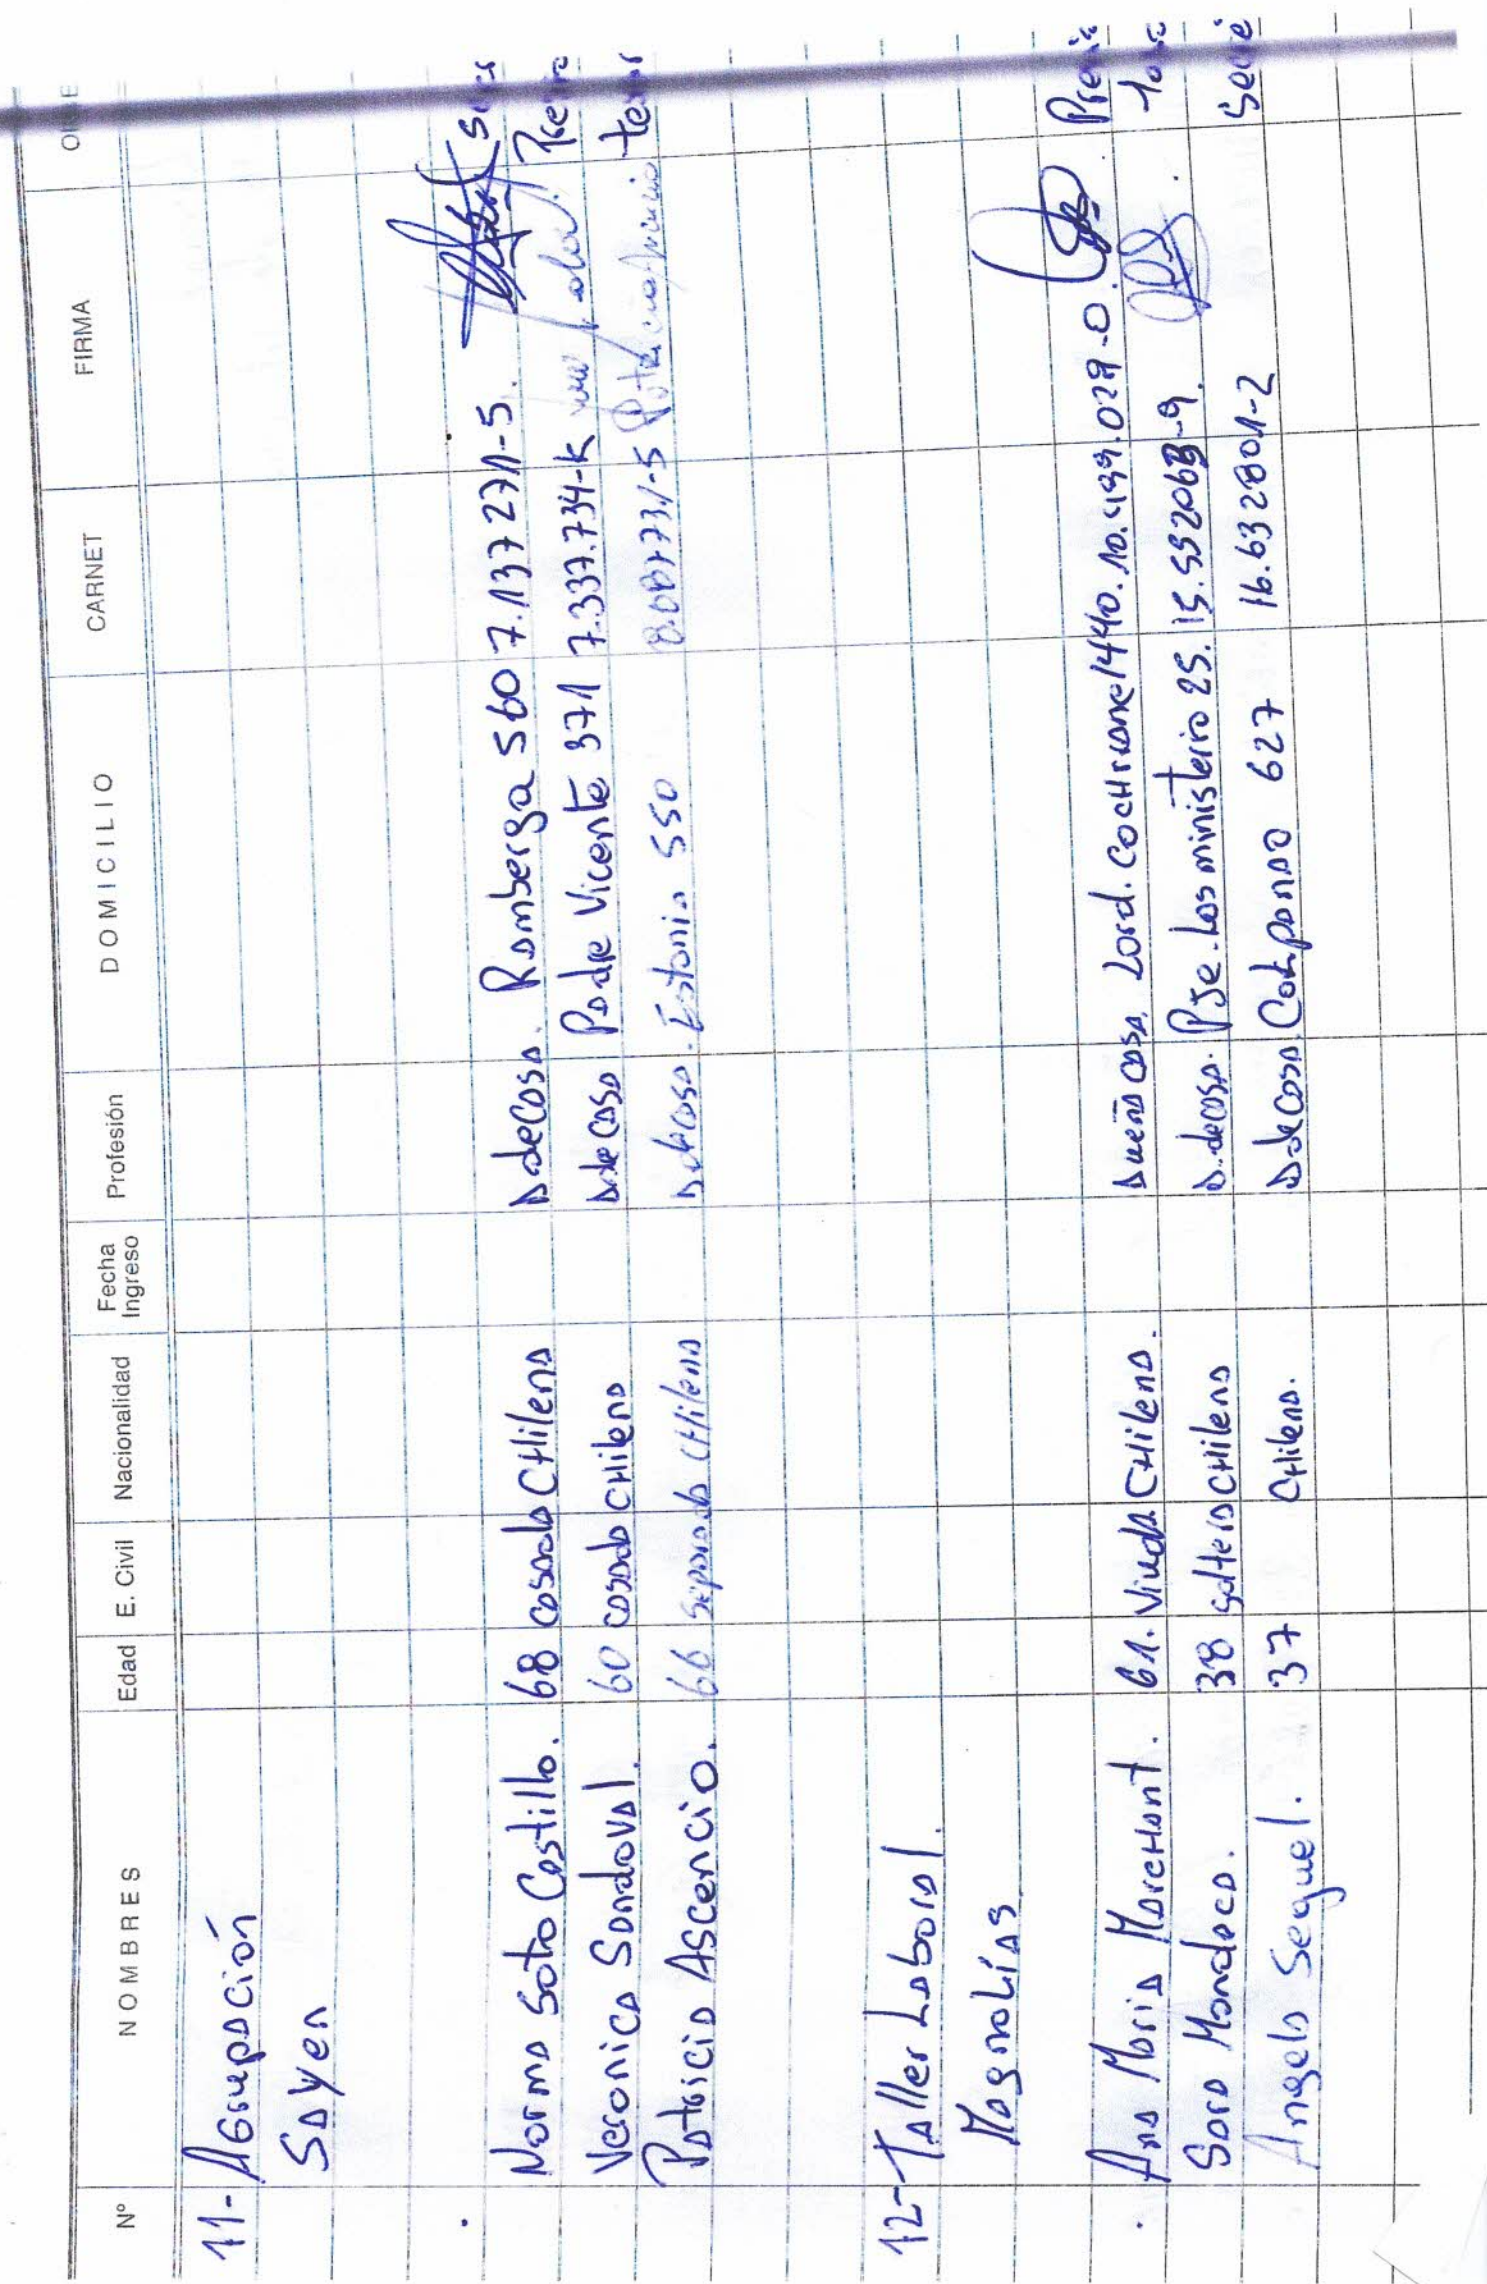 Nº NOMBRES Edad E. Civil Nacionalidad Fecha Ingreso Profesión DOMICILIO CARNET FIRMA
11- Agrupación
Sayen
Norma Soto Castillo. 68 casada CHilena D de Casa. Romberga 560 7.137271-5.
Veronica Sandoval. 60 casada CHilena D. de casa Padre Vicente 371 7.337.734-K
Patricia Ascencio. 66 separada CHilena D de casa. Estonia 550
12- Taller Laboral.
Magnolías
Ana Maria MarcHant. 61. Viuda CHilena. Dueña casa. Lord. CocHrane 1440. 10.499.029-0.
Sara Mandaca. 38 soltera CHilena D. de casa. PJe. Los ministeiro 25.
Angela Seguel. 37 CHilena. D de Casa. Catapano 627 16.632801-2